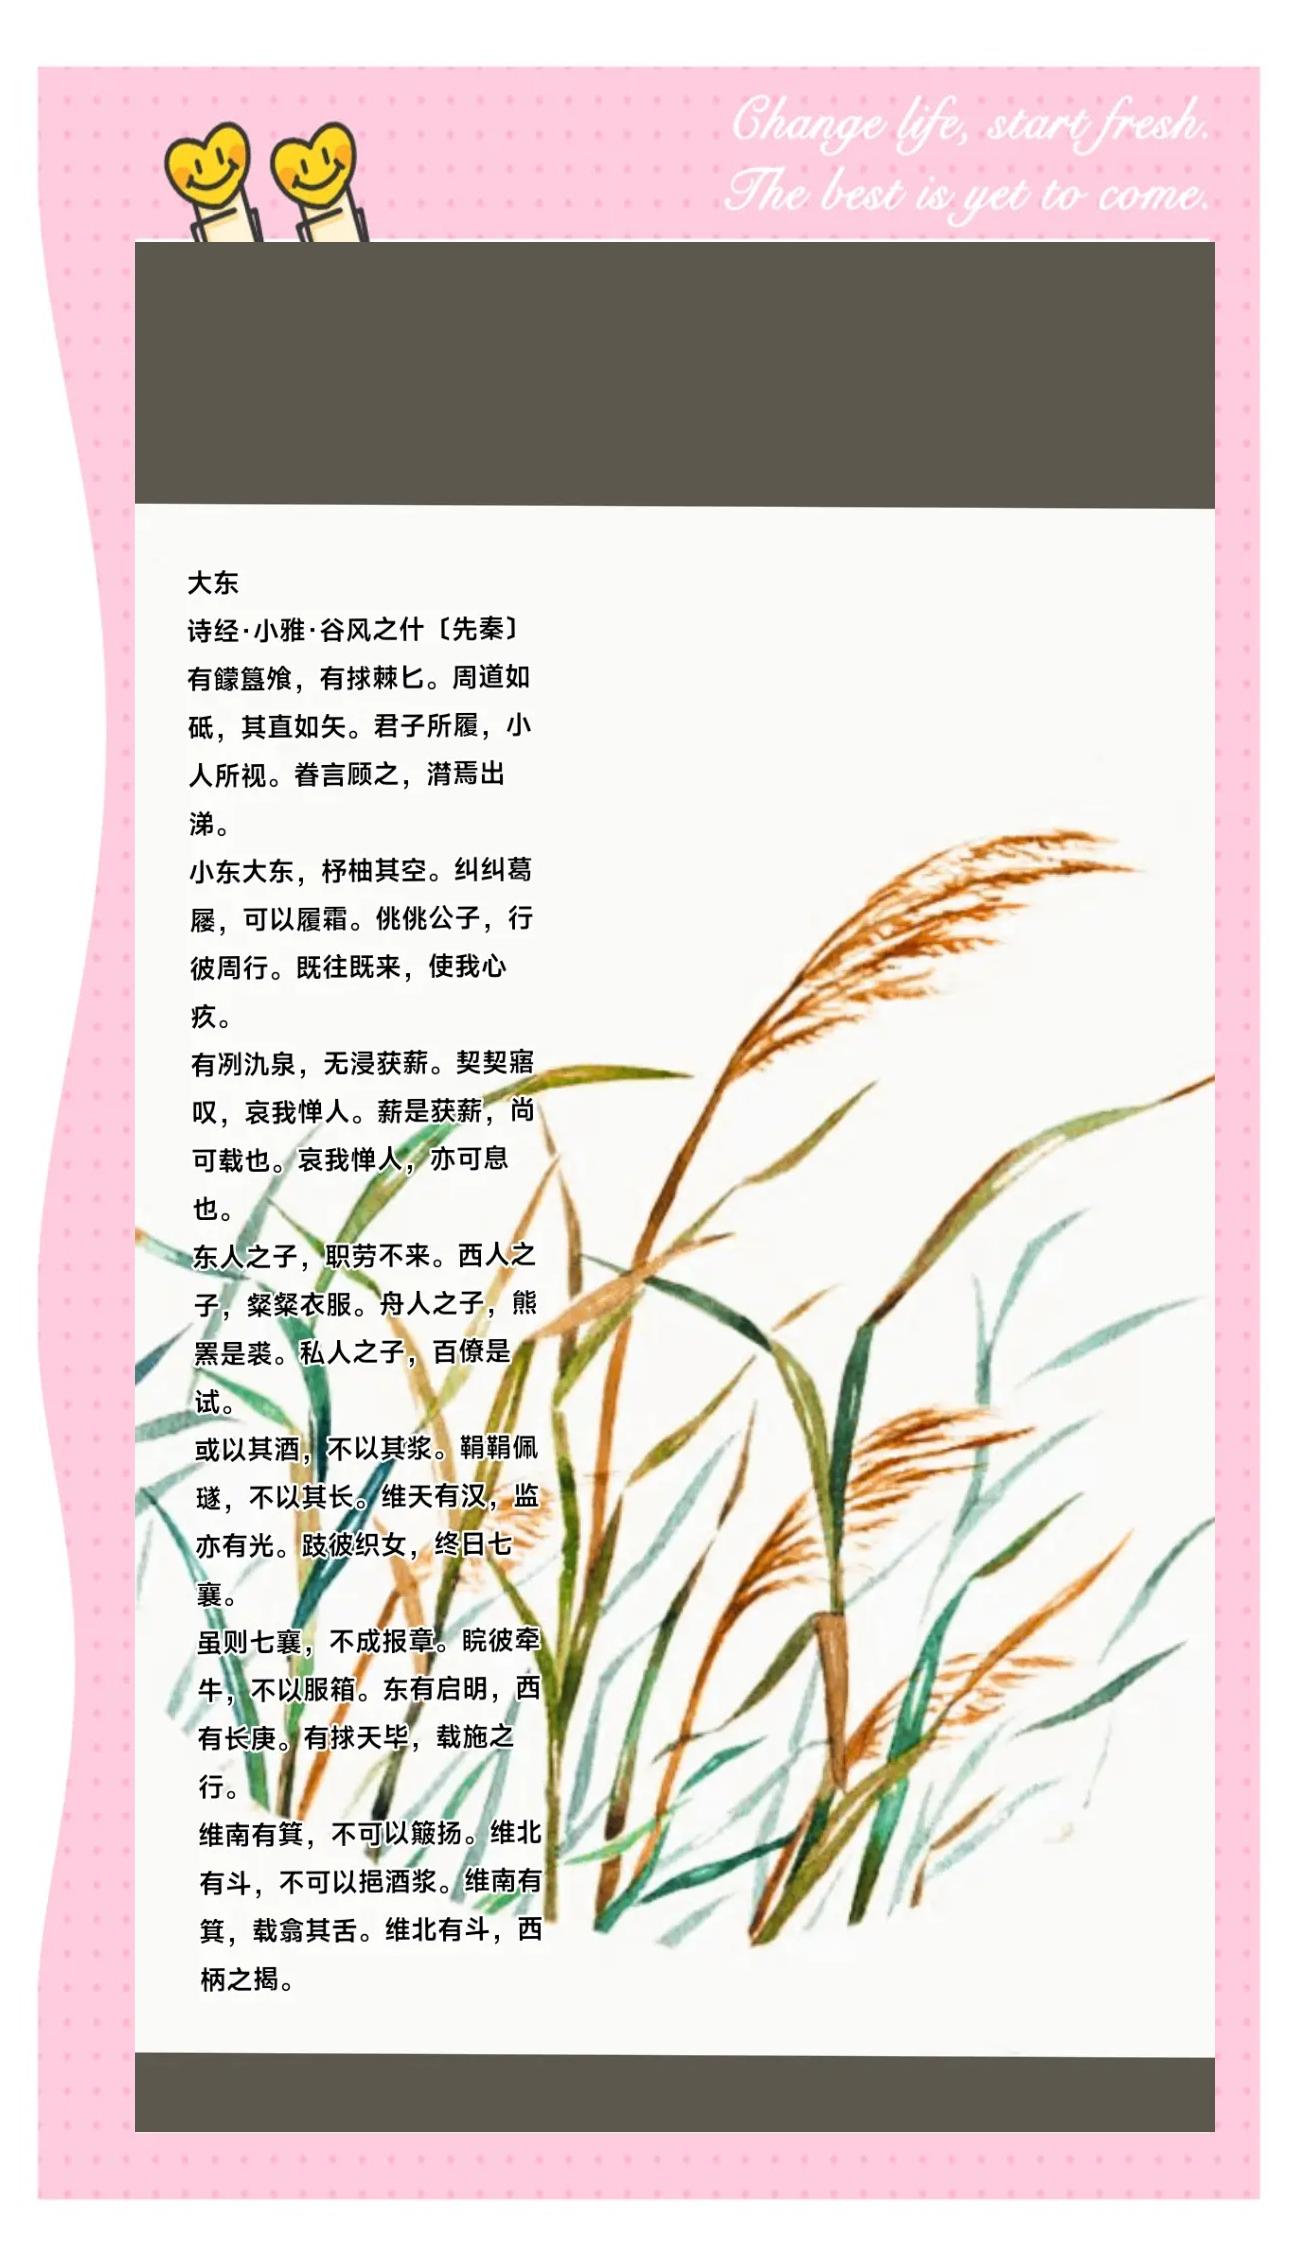 Change life, start fresh.
The best is yet to come.
大东
诗经·小雅·谷风之什〔先秦〕
有饛簋飧，有捄棘匕。周道如
砥，其直如矢。君子所履，小
人所视。眷言顾之，潸焉出
涕。
小东大东，杼柚其空。纠纠葛
屦，可以履霜。佻佻公子，行
彼周行。既往既来，使我心
疚。
有冽氿泉，无浸获薪。契契寤
叹，哀我惮人。薪是获薪，尚
可载也。哀我惮人，亦可息
也。
东人之子，职劳不来。西人之
子，粲粲衣服。舟人之子，熊
罴是裘。私人之子，百僚是
试。
或以其酒，不以其浆。鞙鞙佩
璲，不以其长。维天有汉，监
亦有光。跂彼织女，终日七
襄。
虽则七襄，不成报章。睆彼牵
牛，不以服箱。东有启明，西
有长庚。有捄天毕，载施之
行。
维南有箕，不可以簸扬。维北
有斗，不可以挹酒浆。维南有
箕，载翕其舌。维北有斗，西
柄之揭。